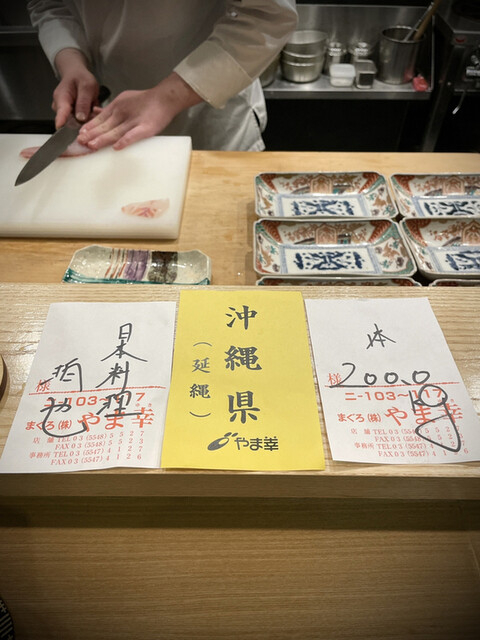 日本料理
様
ニ-103~117
まぐろ(株)やま幸
店 舗 TEL 03 (5548) 5 5 2 7
FAX 03 (5548) 5 5 2 8
事務所 TEL 03 (5547) 4 1 2 7
FAX 03 (5547) 4 1 2 6
沖縄県
(延縄)
やま幸
本
2000
様
ニ-103~117
まぐろ(株)やま幸
店 舗 TEL 03 (5548) 5 5 2 7
FAX 03 (5548) 5 5 2
事務所 TEL 03 (5547) 4 1 2
FAX 03 (5547) 4 1 2 6